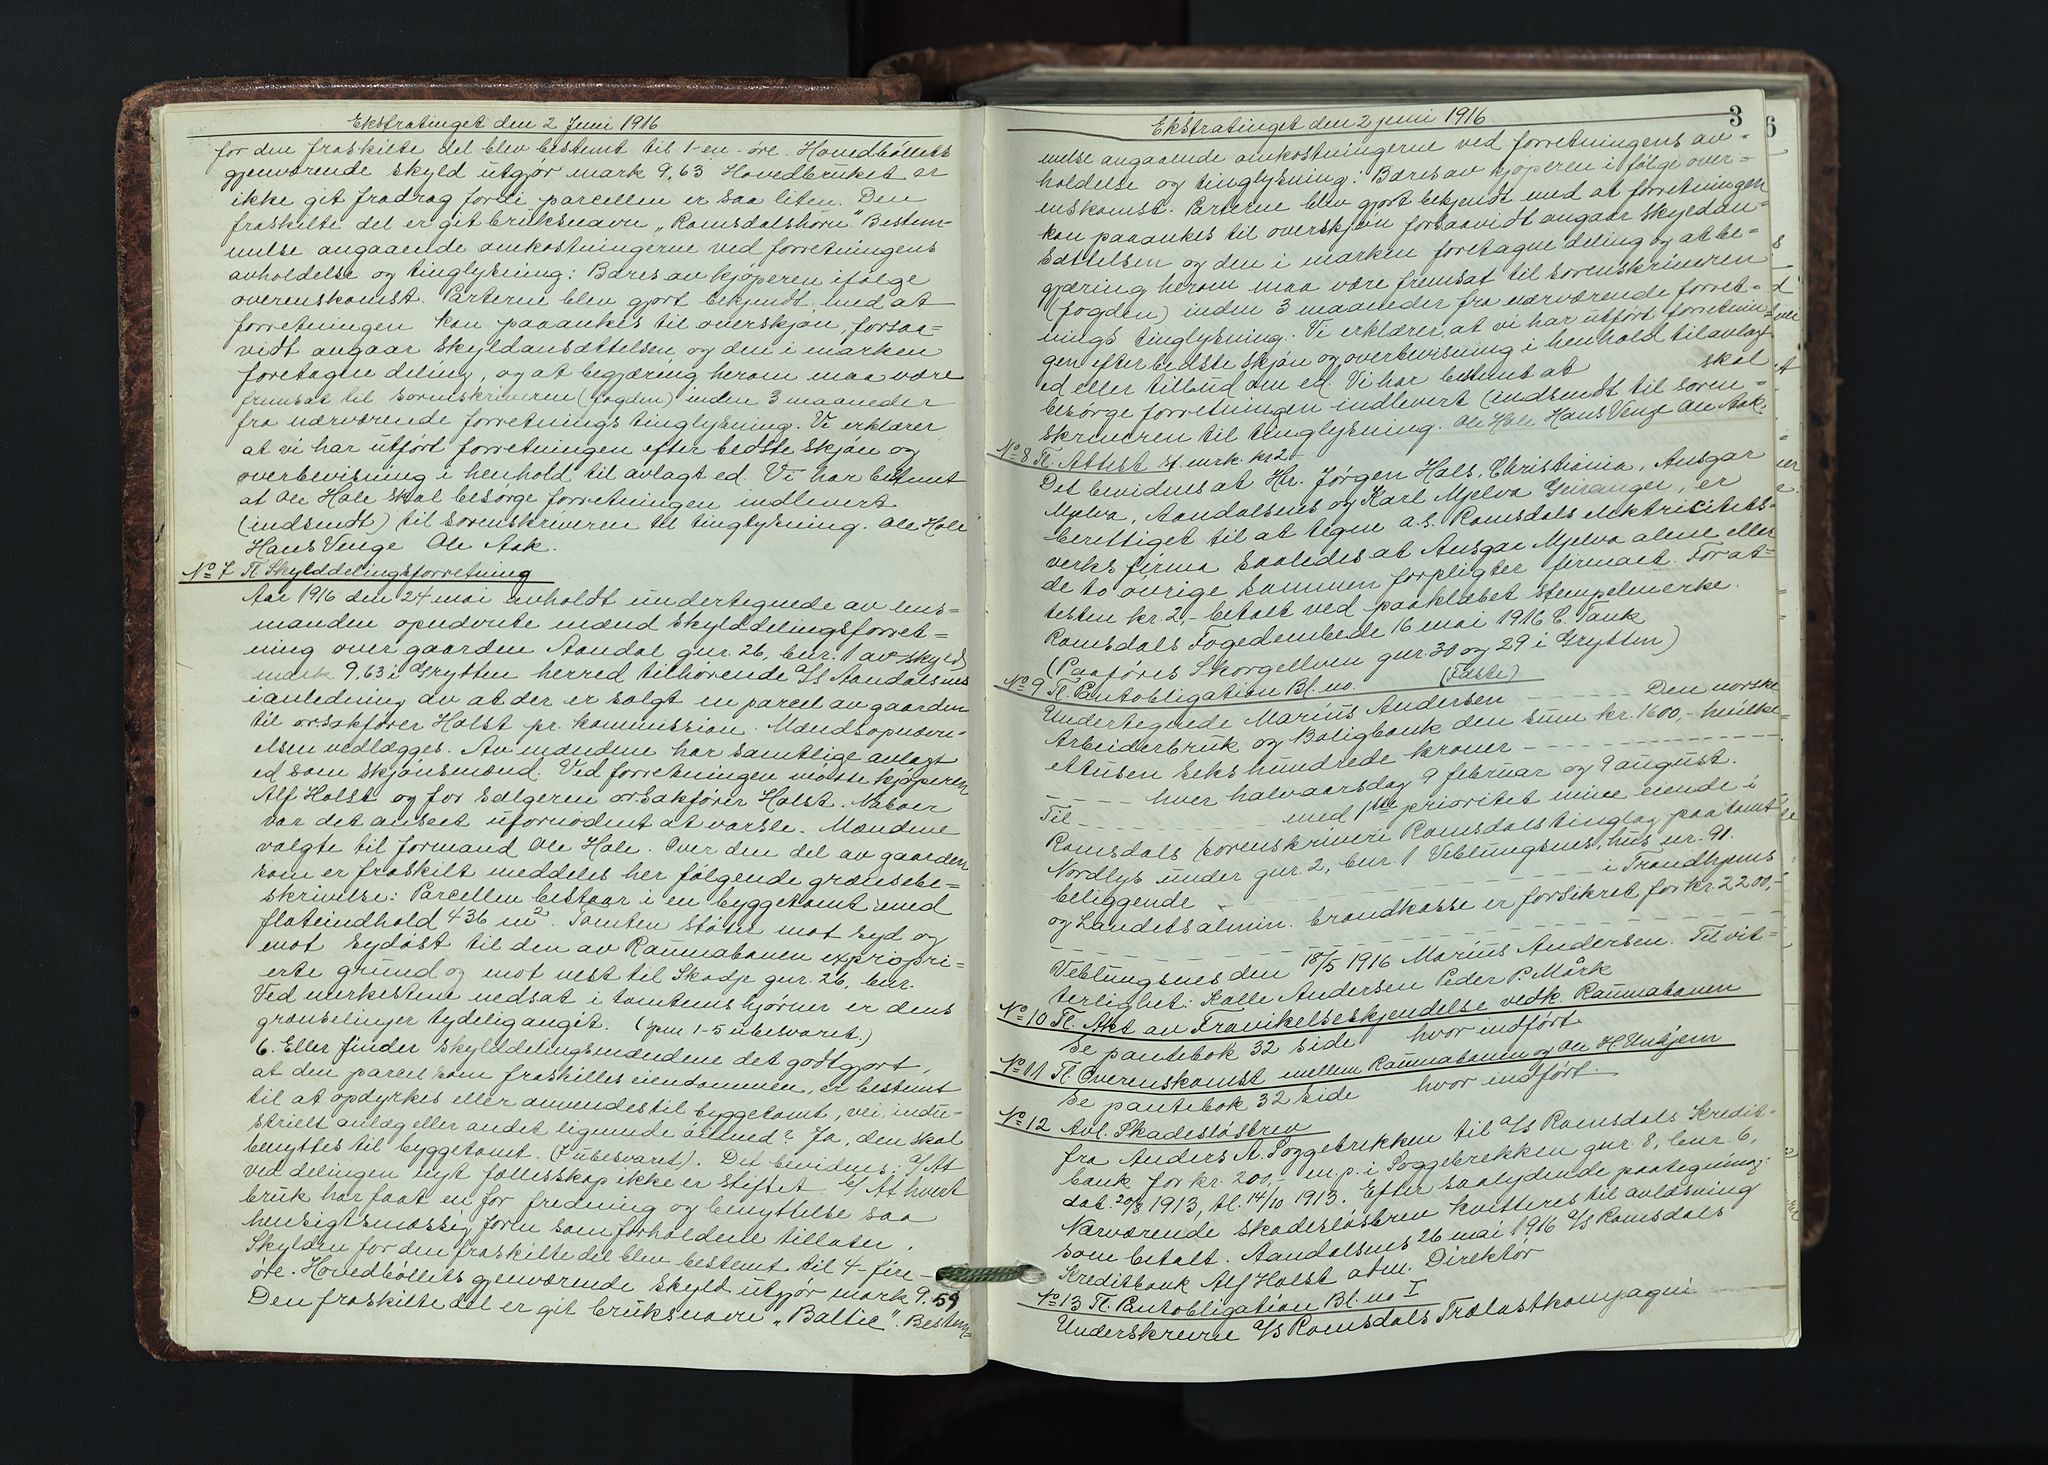 Ekstratinget den 2 Juni 1916
for den fraskilte del blev bestemt til 1-en-øre. Hovedbøllets
gjenværende skyld utgjør mark 9,63 Hovedbruket er
ikke git fradrag fordi parcellen er saa liten. Den
fraskilte del er git bruksnavn "Romsdalshorn" Bestem-
melse angaaende omkostningerne ved forretningens
avholdelse og tinglysning: Bæres av kjøperen ifølge
overenskomst. Parterne blev gjort bekjendt med at
forretningen kan paaankes til overskjøn, forsaa-
vidt angaar skyldansættelsen og den i marken
foretagne deling, og at begjæring herom maa være
fremsat til sorenskriveren (fogden) inden 3 maaneder
fra nærværende forretnings tinglysning. Vi erklærer
at vi har utført forretningen efter bedste skjøn og
overbevisning i henhold til avlagt ed. Vi har bestemt
at Ole Hole skal besørge forretningen indlevert
(indsendt) til sorenskriveren til tinglysning. Ole Hole
Hans Venge Ole Aak.
No 7 Tl. Skylddelingsforretning
Aar 1916 den 24 mai avholdt undertegnede av lens-
manden opnævnte mænd skylddelingsforret-
ning over gaarden Aandal gnr. 26, bnr. 1 av skyld
mark 9,63 i Grytten herred tilhørende A/S Aandalsnes
i anledning av at der er solgt en parcel av gaarden
til orsakfører Holst pr. kommission. Mændsopnævn-
elsen vedlægges. Av mændene har samtlige avlagt
ed som skjønsmænd. Ved forretningen møtte kjøperen
Alf Holst og for sælgeren orsakfører Holst. Naboer
var det anseet ufornødent at varsle. Mændene
valgte til formand Ole Hole. Over den del av gaarden
som er fraskilt meddeles her følgende grænsebe-
skrivelse: Parcellen bestaar i en byggetomt med
flateindhold 436 m2. Tomten støter mot syd og
mot sydøst til den av Raumabanen expropri-
erte grund og mot vest til Skodje gnr. 26, bnr.
Ved merkestene nedsat i tomtens hjørner er dens
grænselinjer tydelig angit. (spm. 1-5 ubesvaret.)
6. Eller finder skylddelingsmændene det godtgjort,
at den parcel som fraskilles eiendommen, er bestemt
til at opdyrkes eller anvendes til byggetomt, vei, indu-
strielt anlæg eller andet lignende øiemed? Ja, den skal
benyttes til byggetomt. (7 ubesvaret). Det bevidnes: a/ At
ved delingen nyt fællesskap ikke er stiftet b/ At hvert
bruk har faat en for fredning og benyttelse saa
hensigtsmæssig form som forholdene tillater.
Skylden for den fraskilte del blev bestemt til 4-fire-
øre. Hovedbøllets gjenværende skyld utgjør mark 9.59
Den fraskilte del er git bruksnavn "Baltic". Bestem-
Ekstratinget den 2 juni 1916
3
melse angaaende omkostningerne ved forretningens av-
holdelse og tinglysning: Bæres av kjøperen i følge over-
enskomst. Parterne blev gjort bekjendt med at forretningen
kan paaankes til overskjøn forsaavidt angaar skyldan-
sættelsen og den i marken foretagne deling og at be-
gjæring herom maa være fremsat til sorenskriveren
(fogden) inden 3 maaneder fra nærværende forret-
nings tinglysning. Vi erklærer, at vi har utført forretnin-
gen efter bedste skjøn og overbevisning i henhold til avlagt
ed eller tilbud om ed. Vi har bestemt at skal
besørge forretningen indlevert (indsendt til soren-
skriveren til tinglysning. Ole Hole Hans Venge Ole Aak.
No 8 Tl. Attest st. mrk. kr 2-
Det bevidnes at Hr. Jørgen Hals, Christiania, Ansgar
Mjelva, Aandalsnes og Karl Mjelva Geiranger, er
berettiget til at tegne a.s. Romsdals elektricitets-
verks firma saaledes at Ansgar Mjelva alene eller
de to øvrige sammen forpligter firmaet. For at-
testen kr. 2,- betalt ved paaklæbet stempelmerke.
Romsdals Fogedembede 16 mai 1916 C. Tank
(Paaføres Skorgelven gnr. 30 og 29 i Grytten)
No 9 Tl. Pantobligation Bl. no. (Faste)
Undertegnede Marius Andersen - - - - - Den norske
Arbeiderbruk og Boligbank den sum kr. 1600,- hvilke-
ettusen sekshundrede kroner - - - - - -
- - - - hver halvaarsdag 9 februar og 9 august.
Til - - - - - med 1ste prioritet mine eiende i
Romsdals sorenskriveri Romsdals tinglag paa tomt
Nordlys under gnr. 2, bnr. 1 Veblungsnes, hus nr. 91.
beliggende - - - - - i Trondhjems
og Landets almin. brandkasse er forsikret for kr. 2200,-
Veblungsnes den 18/5 1916 Marius Andersen. Til vit-
terlighet: Kalle Andersen Peder P. Mørk
No 10 Tl. Akt av Fravikelseskjendelse vedk. Raumabanen
Se pantebok 32 side hvor indført
No 11 Tl. Overenskomst mellem Raumabanen og Ole H. Unhjem
Se pantebok 32 side hvor indført.
No 12 Avl. Skadesløsbrev
fra Anders A. Soggebrekken til A/S Romsdals Kredit-
bank for kr. 200,- m. p. i Soggebrekken gnr. 8, bnr. 6,
dat. 20/8 1913, tl. 14/10 1913. Efter saalydende paategning:
Nærværende skadesløsbrev kvitteres til avlæsning
som betalt. Aandalsnes 26 mai 1916 A/S Romsdals
Kreditbank Alf Holst adm. Direktør
No 13 Tl. Pantobligation Bl. no I
Underskrevne A/S Romsdals Trælastkompagni